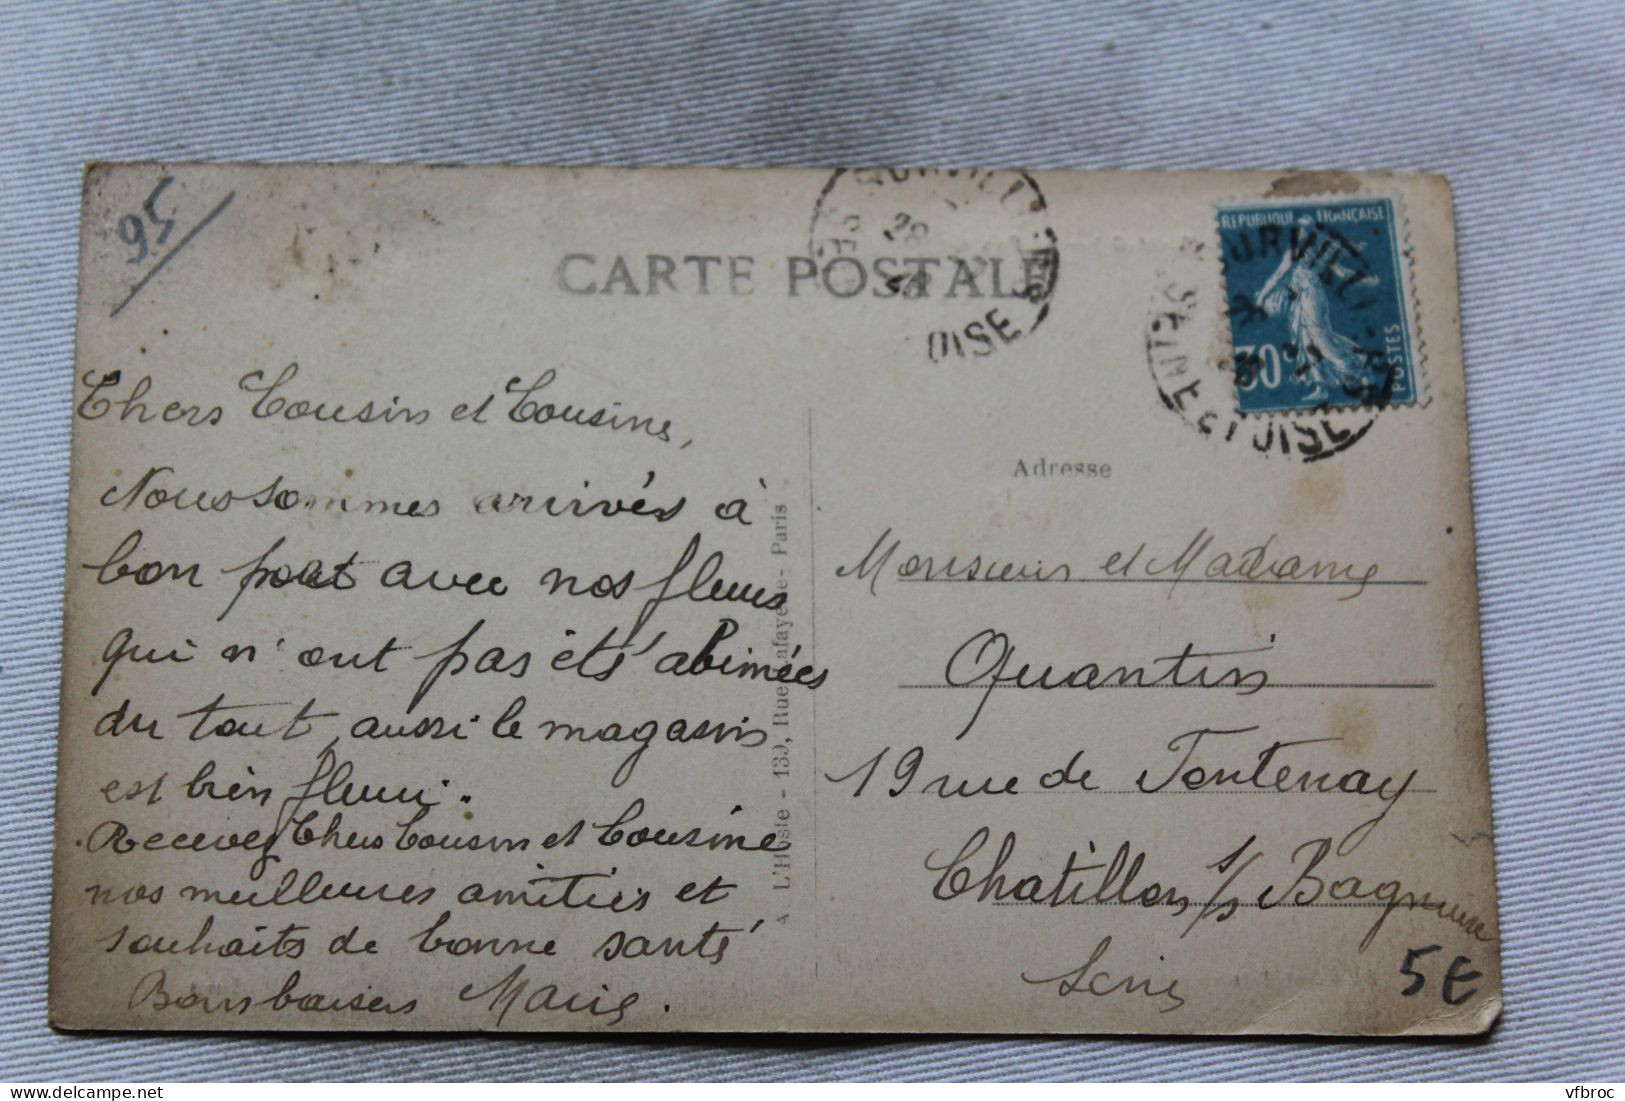 95
CARTE POSTALE
OISE
REPUBLIQUE FRANÇAISE
30c
POSTES
SEINE ET OISE
Chers Cousin et Cousine,
Nous sommes arrivés à
bon port avec nos fleurs
qui n'ont pas étés abimées
du tout, aussi le magasin
est bien fleuri.
Recevez Chers Cousin et Cousine
nos meilleures amitiés et
souhaits de bonne santé
Bons baisers Marie.
A. L'Hoste - 139, Rue Lafayette - Paris
Adresse
Monsieur et Madame
Quantin
19 rue de Fontenay
Chatillon s/s Bagneux
Seine
5€
vfbroc